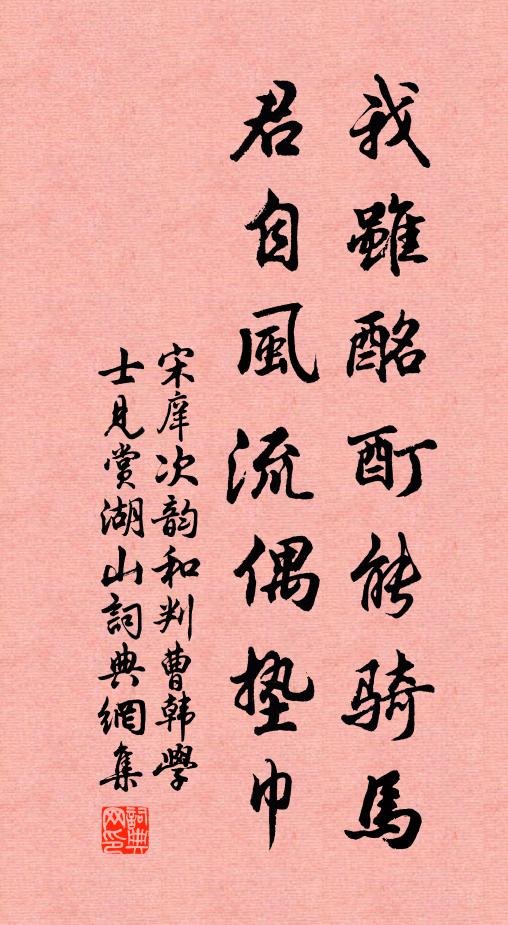 我雖酩酊能騎馬
君自風流偶墊巾
宋庠次韵和判曹韩學
士見赏湖山詞典網集
詞典
网印